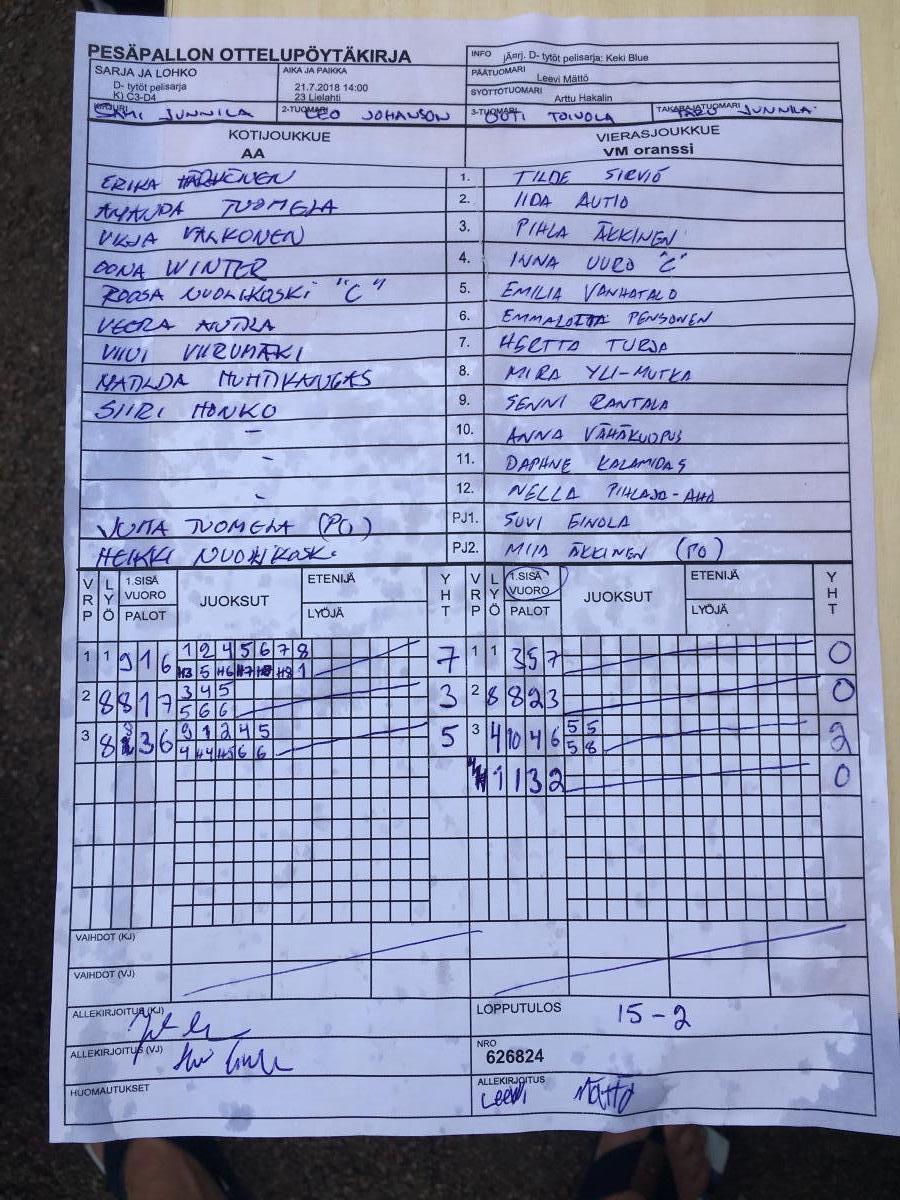 PESÄPALLON OTTELUPÖYTÄKIRJA
INFO jÄnrj. D- tytöt pelisarja: Keki Blue
SARJA JA LOHKO
D- tytöt pelisarja
K) C3-D4
AIKA JA PAIKKA
21.7.2018 14:00
23 Lielahti
PÄÄTUOMARI
Leevi Mättö
SYÖTTÖTUOMARI
Arttu Hakalin
SAMI JUNNILA
2-TUOMARI LEO JOHANSON
3-TUOMARI OUTI TOIVOLA
TAKARAJATUOMARI TARU JUNNILA
KOTIJOUKKUE
AA
VIERASJOUKKUE
VM oranssi
ERIKA 1. TILDE SIRVIÖ
AMANDA TUOMELA 2. IIDA AUTIO
VALKONEN 3. PIHLA ÄKKINEN
OONA WINTER 4. INNA UURO "C"
ROOSA NUOLIKOSKI "C" 5. EMILIA VANHATALO
VEERA AUTILA 6. EMMALOTTA PENSONEN
VIIVI VIIRUMÄKI 7. HERTTA TURJA
MATILDA HUHTIKANGAS 8. MIRA YLI-MUTKA
SIIRI HONKO 9. SENNI RANTALA
- 10. ANNA VÄHÄKUOPUS
- 11. DAPHNE KALAMIDAS
- 12. NELLA PIHLAJA-AHO
JUTTA TUOMELA (PO) PJ1. SUVI EINOLA
HEIKKI NUOLIKOSKI PJ2. MIIA ÄKKINEN (PO)
VRP LYÖ 1.SISÄ VUORO PALOT JUOKSUT ETENIJÄ LYÖJÄ YHT VRP LYÖ 1.SISÄ VUORO PALOT JUOKSUT ETENIJÄ LYÖJÄ YHT
1 1 9 1 6 1 2 4 5 6 7 8 7 1 1 3 5 7 0
H3 5 H6 H7 H8 H8 1
2 8 8 1 7 3 4 5 3 2 8 8 2 3 0
5 6 6
3 8 3 6 9 1 2 4 5 5 3 4 10 4 6 5 5 2
4 H4 H5 6 6 5 8
1 1 3 2 0
VAIHDOT (KJ)
VAIHDOT (VJ)
ALLEKIRJOITUS (KJ)
LOPPUTULOS 15-2
ALLEKIRJOITUS (VJ)
NRO
626824
HUOMAUTUKSET
ALLEKIRJOITUS
Leevi Mättö